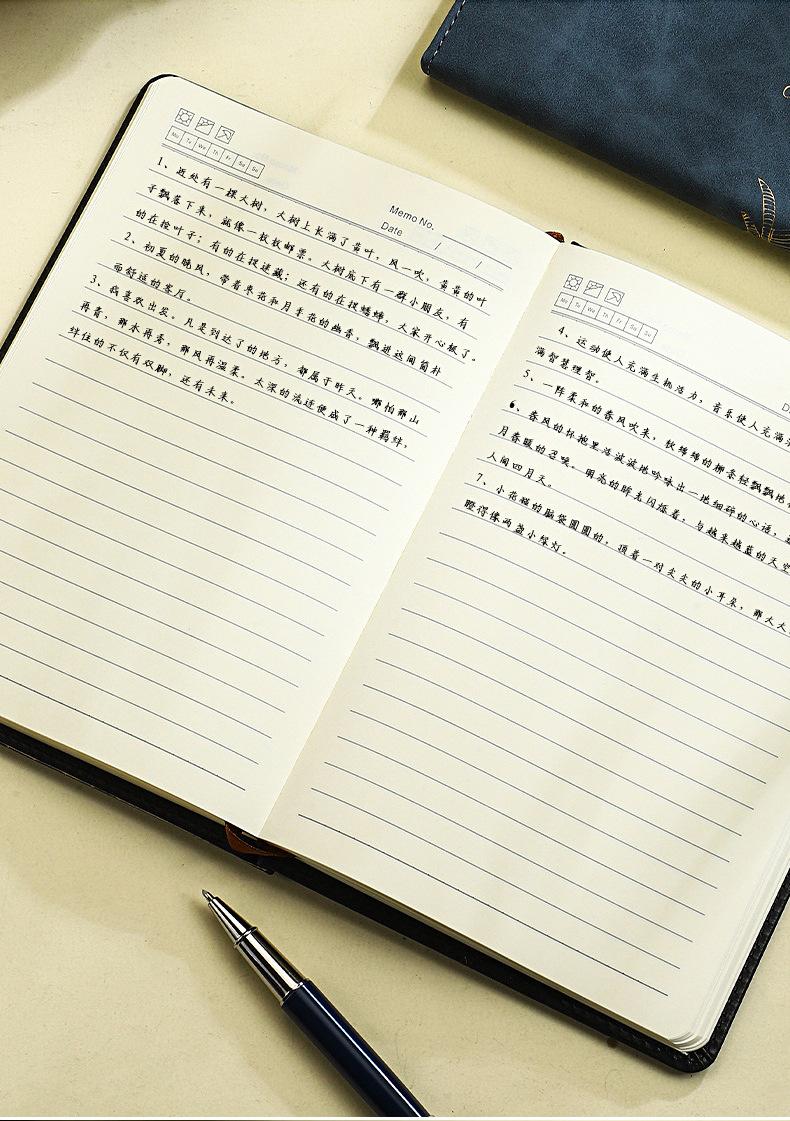 Mo Tu We Th Fr Sa Su
Memo No.
Date / /
1、近处有一棵大树，大树上长满了黄叶，风一吹，黄黄的叶
子飘落下来，就像一枚枚邮票。大树底下有一群小朋友，有
的在捡叶子；有的在捉迷藏；还有的在捉蟋蟀，大家开心极了。
2、初夏的晚风，带着枣花和月季花的幽香，飘进这间简朴
而舒适的客厅。
3、我喜欢出发。凡是到达了的地方，都属于昨天。哪怕那山
再青，那水再秀，那风再温柔。太深的流连便成了一种羁绊，
绊住的不仅有双脚，还有未来。
Mo Tu We Th Fr Sa Su
D
4、运动使人充满生机活力，音乐使人充满
满智慧理智。
5、一阵柔和的春风吹来，软绵绵的柳条轻飘飘地
6、春风的怀抱里洛波波地吟咏出一地细碎的心语，
月春暖的召唤。明亮的眸光闪烁着，与越来越蓝的天空
人间四月天。
7、小花猫的脑袋圆圆的，顶着一对尖尖的小耳朵，那大大
瞪得像两盏小绿灯。